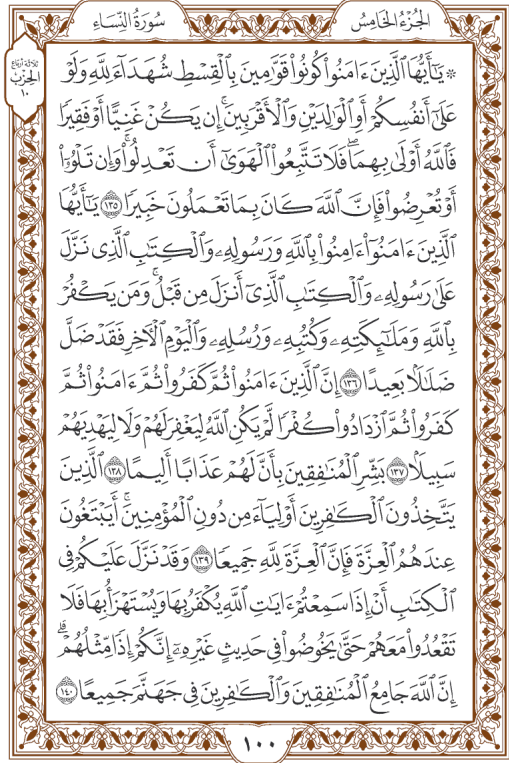 الجُزْءُ الخَامِسُ
سُورَةُ النِّسَاءِ
ثلاثة أرباع
الحِزْب
١٠
۞ يَـٰٓأَيُّهَا ٱلَّذِينَ ءَامَنُوا۟ كُونُوا۟ قَوَّٰمِينَ بِٱلْقِسْطِ شُهَدَآءَ لِلَّهِ وَلَوْ
عَلَىٰٓ أَنفُسِكُمْ أَوِ ٱلْوَٰلِدَيْنِ وَٱلْأَقْرَبِينَ ۚ إِن يَكُنْ غَنِيًّا أَوْ فَقِيرًا
فَٱللَّهُ أَوْلَىٰ بِهِمَا ۖ فَلَا تَتَّبِعُوا۟ ٱلْهَوَىٰٓ أَن تَعْدِلُوا۟ ۚ وَإِن تَلْوُۥٓا۟
أَوْ تُعْرِضُوا۟ فَإِنَّ ٱللَّهَ كَانَ بِمَا تَعْمَلُونَ خَبِيرًا ١٣٥ يَـٰٓأَيُّهَا
ٱلَّذِينَ ءَامَنُوٓا۟ ءَامِنُوا۟ بِٱللَّهِ وَرَسُولِهِۦ وَٱلْكِتَـٰبِ ٱلَّذِى نَزَّلَ
عَلَىٰ رَسُولِهِۦ وَٱلْكِتَـٰبِ ٱلَّذِىٓ أَنزَلَ مِن قَبْلُ ۚ وَمَن يَكْفُرْ
بِٱللَّهِ وَمَلَـٰٓئِكَتِهِۦ وَكُتُبِهِۦ وَرُسُلِهِۦ وَٱلْيَوْمِ ٱلْـَٔاخِرِ فَقَدْ ضَلَّ
ضَلَـٰلًۢا بَعِيدًا ١٣٦ إِنَّ ٱلَّذِينَ ءَامَنُوا۟ ثُمَّ كَفَرُوا۟ ثُمَّ ءَامَنُوا۟ ثُمَّ
كَفَرُوا۟ ثُمَّ ٱزْدَادُوا۟ كُفْرًا لَّمْ يَكُنِ ٱللَّهُ لِيَغْفِرَ لَهُمْ وَلَا لِيَهْدِيَهُمْ
سَبِيلًۢا ١٣٧ بَشِّرِ ٱلْمُنَـٰفِقِينَ بِأَنَّ لَهُمْ عَذَابًا أَلِيمًا ١٣٨ ٱلَّذِينَ
يَتَّخِذُونَ ٱلْكَـٰفِرِينَ أَوْلِيَآءَ مِن دُونِ ٱلْمُؤْمِنِينَ ۚ أَيَبْتَغُونَ
عِندَهُمُ ٱلْعِزَّةَ فَإِنَّ ٱلْعِزَّةَ لِلَّهِ جَمِيعًا ١٣٩ وَقَدْ نَزَّلَ عَلَيْكُمْ فِى
ٱلْكِتَـٰبِ أَنْ إِذَا سَمِعْتُمْ ءَايَـٰتِ ٱللَّهِ يُكْفَرُ بِهَا وَيُسْتَهْزَأُ بِهَا فَلَا
تَقْعُدُوا۟ مَعَهُمْ حَتَّىٰ يَخُوضُوا۟ فِى حَدِيثٍ غَيْرِهِۦٓ ۚ إِنَّكُمْ إِذًا مِّثْلُهُمْ ۗ
إِنَّ ٱللَّهَ جَامِعُ ٱلْمُنَـٰفِقِينَ وَٱلْكَـٰفِرِينَ فِى جَهَنَّمَ جَمِيعًا ١٤٠
١٠٠